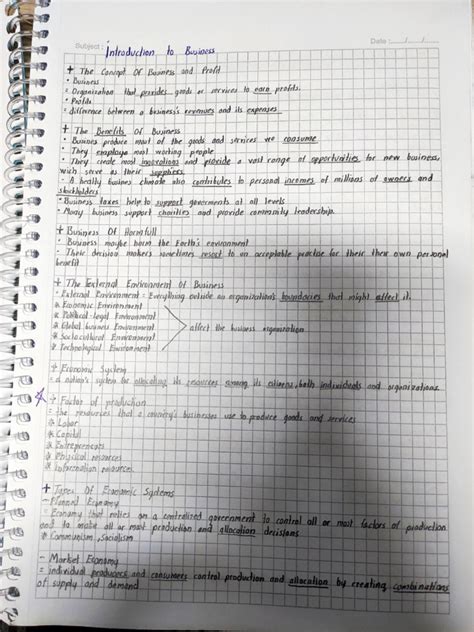 Subject : Introduction to Business
Date : ...../...../......
+ The Concept Of Business and Profit
• Business
= Organization that provides goods or services to earn profits.
• Profits
= difference between a business's revenues and its expenses
+ The Benefits Of Business
• Business produce most of the goods and services we consume
• They employs most working people
• They create most innovations and provide a vast range of opportunities for new business,
wich serve as their suppliers
• A healty business climate also contributes to personal incomes of millions of owners and
stockholders
• Business taxes help to support goverments at all levels
• Many business support charities and provide community leadership.
+ Business Of Harmfull
• Business maybe harm the Earth's environment
• Their decision makers sometimes resort to an acceptable practise for these their own personal
benefit
+ The External Environment Of Business
* External Environment : Everything outside an organization's boundaries that might affect it.
* Economic Environment
* Political-Legal Environment
* Global business Environment
affect the business organization
* Sociocultural Environment
* Technological Environment
+ Economic System
a nation's system for allocating its resources among its citizens, both individuals and organizations.
+ Factor of production
= the resources that a country's businesses use to produce goods and services
* Labor
* Capital
* Entrepreneurs
* Physical resources
* Information resources
+ Types Of Economic Systems
- Planned Economy
= Economy that relies on a centralized government to control all or most factors of production
and to make all or most production and allocation decisions
* Communism, Socialism
- Market Economy
= individual producers and consumers control production and allocation by creating combinations
of supply and demand